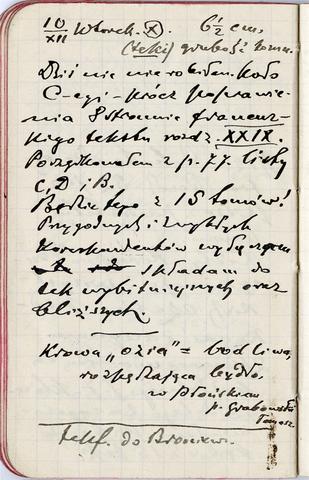 10/XII Wtorek. (X). 6½ cm.
(teki) grubość tomu.
Dziś nic nie robiłem koło
C-egi - prócz poprawie-
nia 8 stronic francuz-
kiego tekstu rozdz. XXIX.
Porządkowałem z p. 77 listy
C, D i B.
Będzie tego z 15 tomów!
Przygodnych i zwykłych
korespondentów wyłączam
składam do
tek wybitniejszych oraz
bliższych.
Krowa „ozia" = bodliwa,
rozpędzająca bydło,
w Płońskiem
p. Grabowski
Tomasz.
telef. do Broniew.